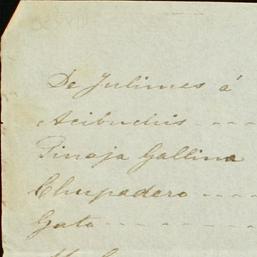 De Julimes á
Acibuchis - - -
Tinaja Gallina
Chupadero - - - -
Gato - - - - -